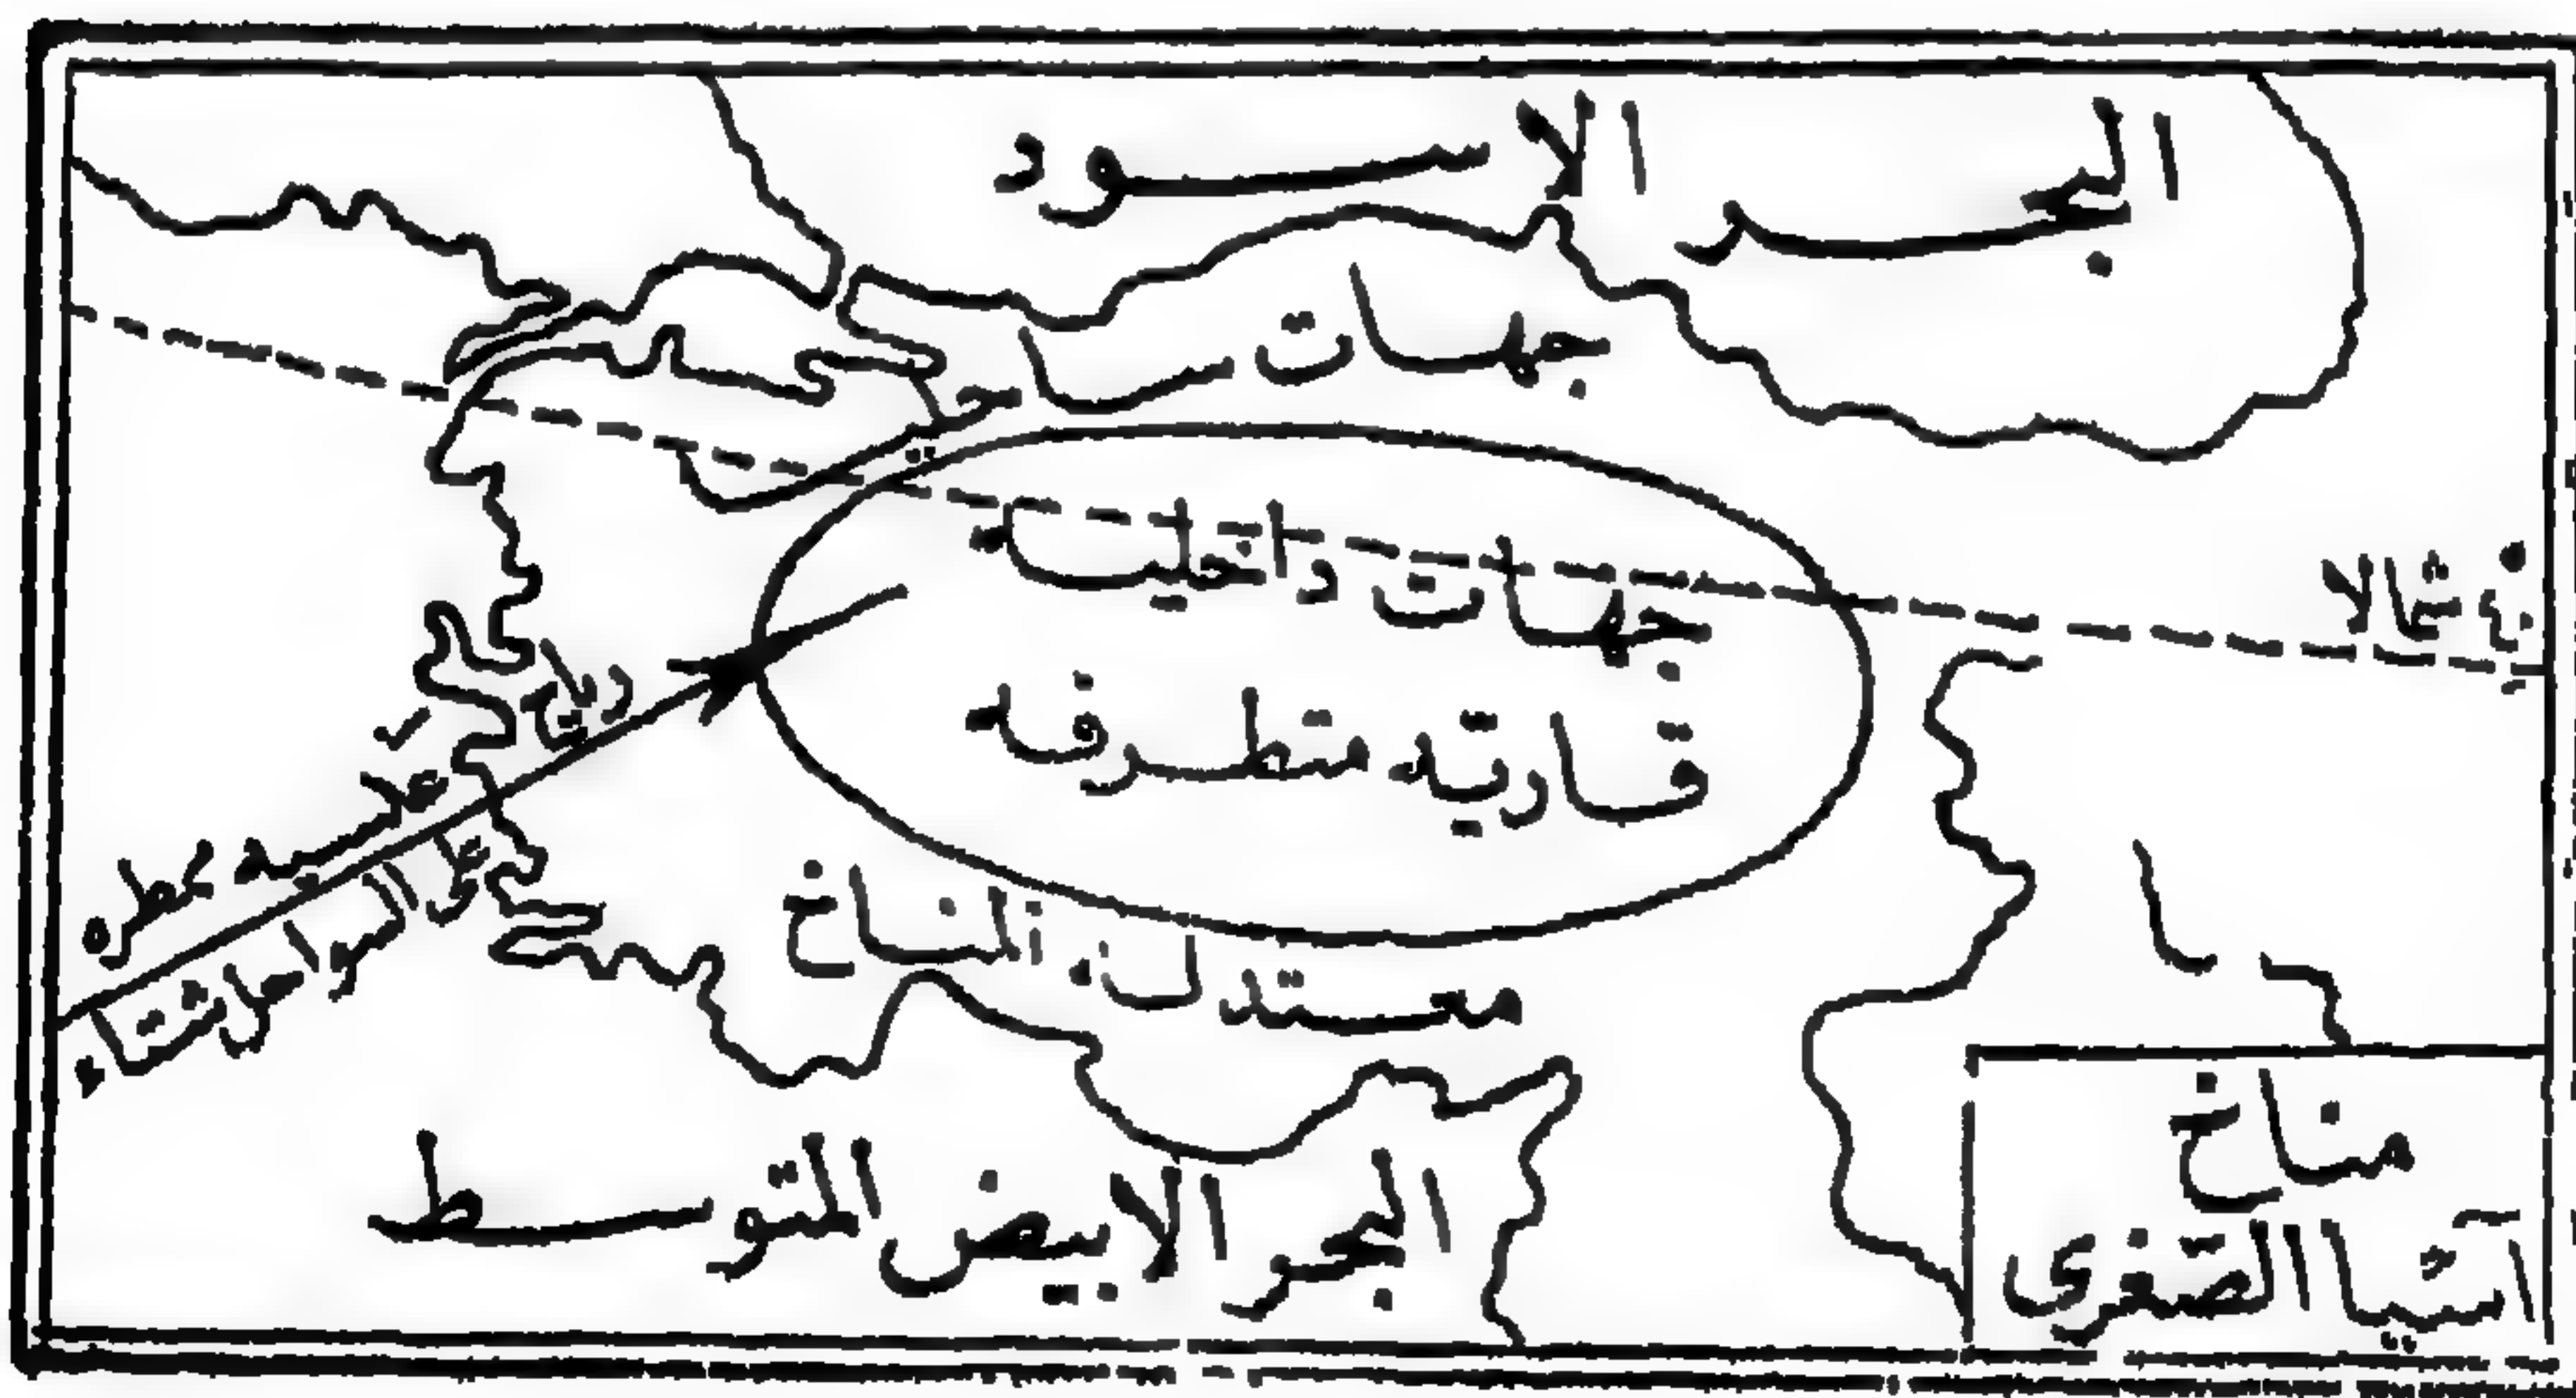 البحر الاسود
جهات ساحلية
٤٠° شمالا
جهات داخلية
قارية متطرفه
رياح
عكسيه ممطره
على السواحل شتاء
معتدلة المناخ
البحر الابيض المتوسط
مناخ
آسيا الصغرى